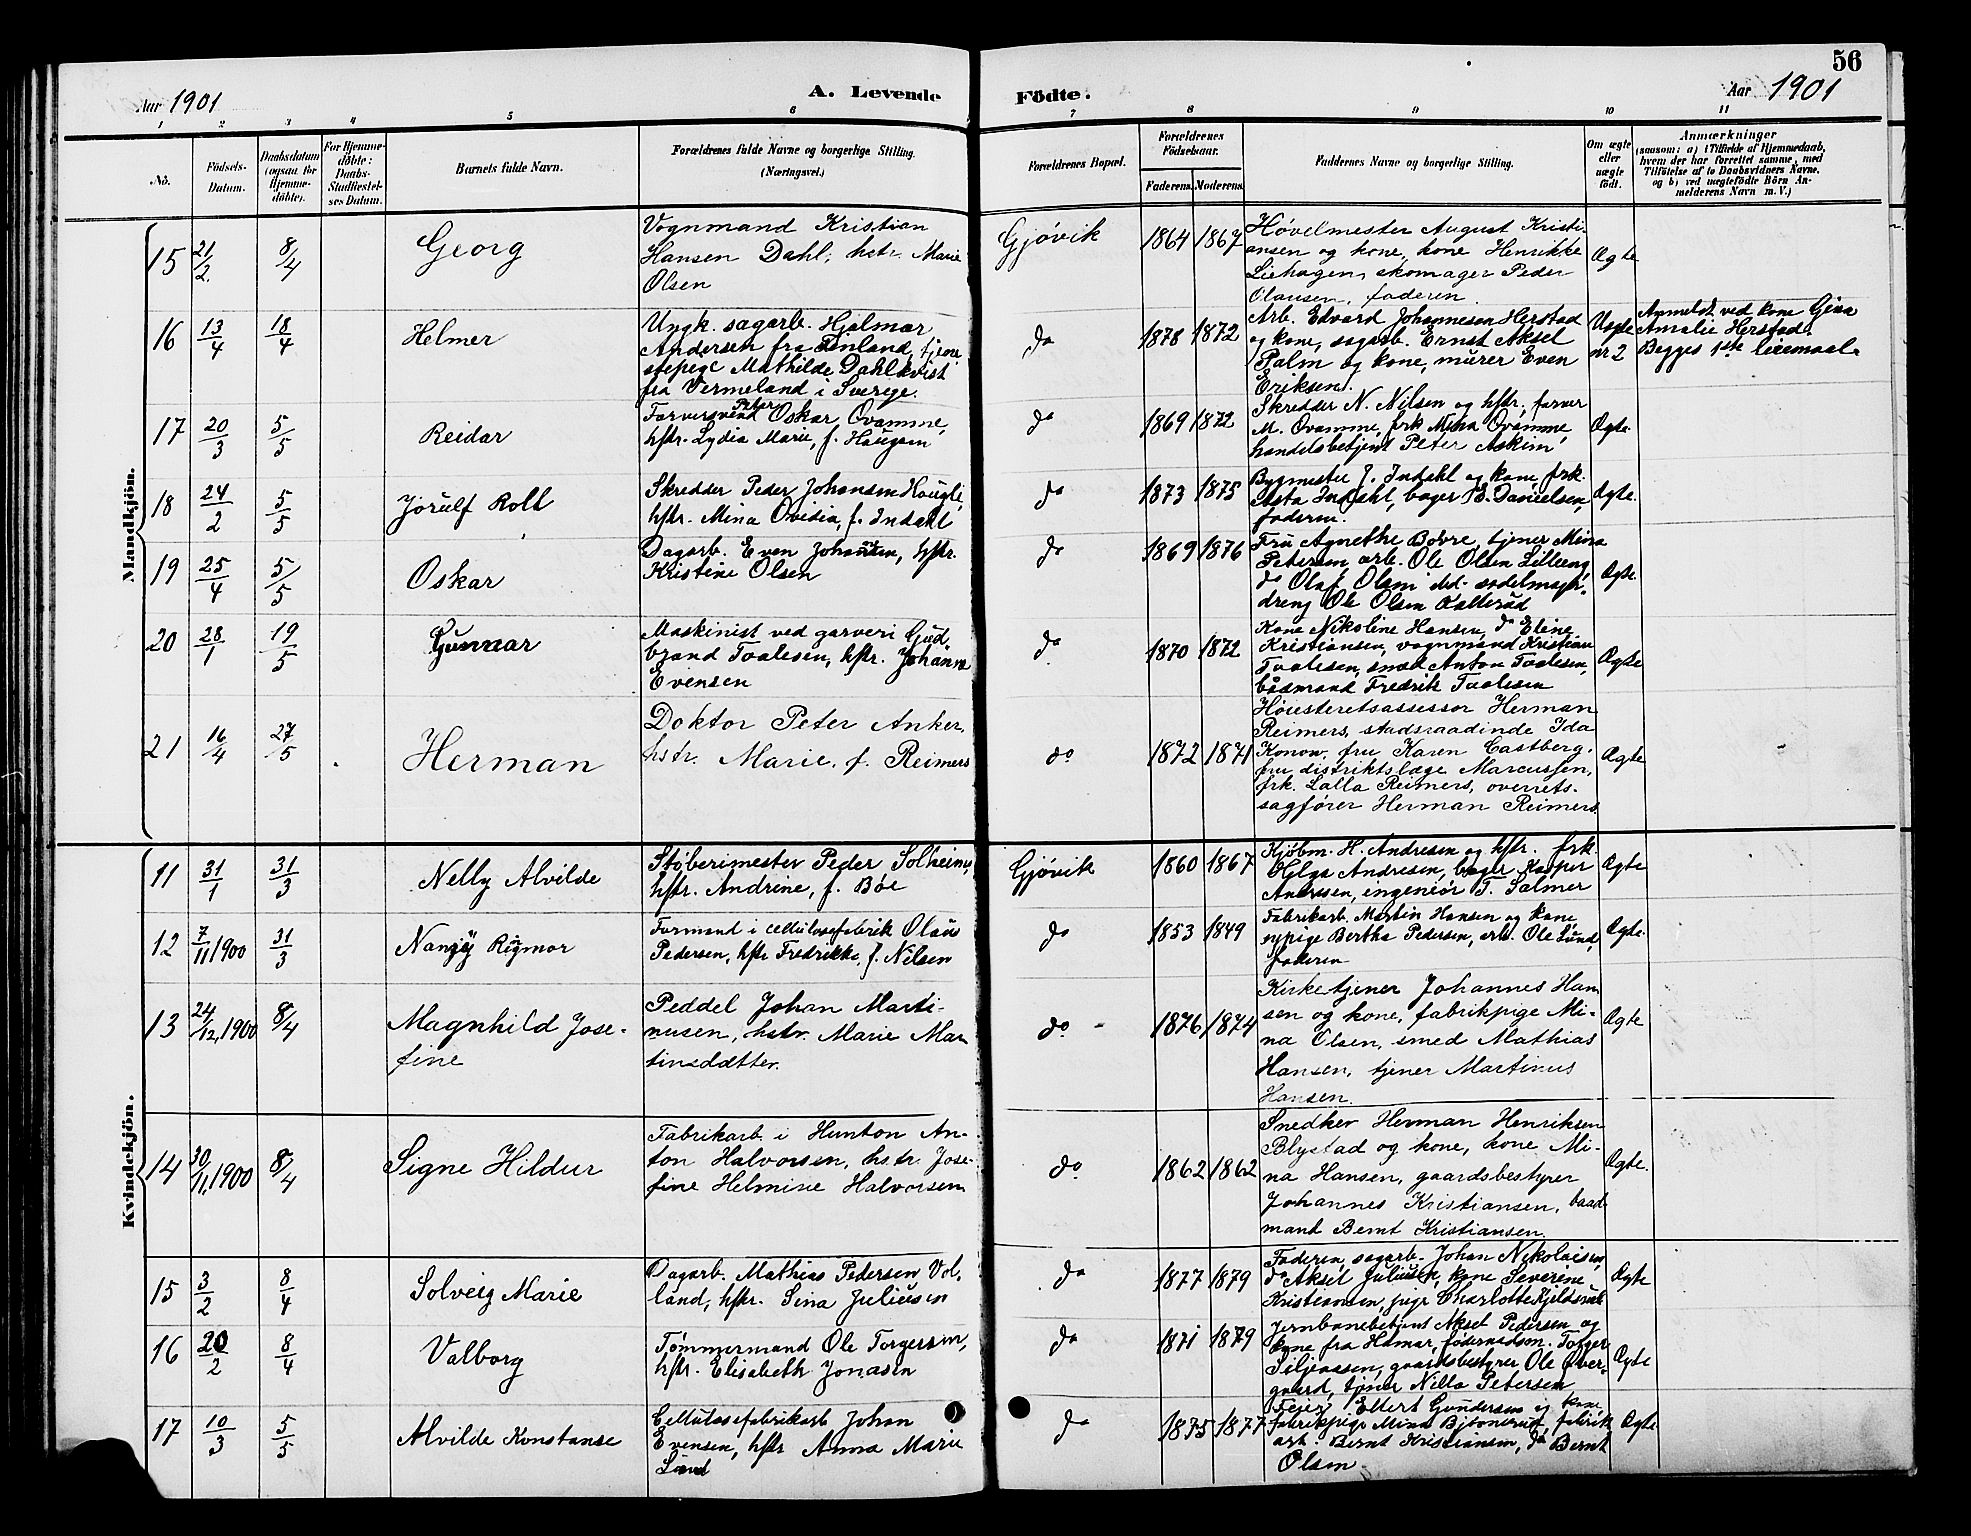 56
Aar 1901
A. Levende
Födte.
Aar 1901
1 2 3 4 5 6 7 8 9 10 11
No.
Födsels-
Datum.
Daabsdatum
(ogsaa for
Hjemme-
döbte).
For Hjemme-
döbte:
Daabs-
Stadfæstel-
ses Datum.
Barnets fulde Navn.
Forældrenes fulde Navne og borgerlige Stilling.
(Næringsvei.)
Forældrenes Bopæl.
Forældrenes
Födselsaar.
Faderens. Moderens.
Faddernes Navne og borgerlige Stilling.
Om ægte
eller
uægte
født.
Anmærkninger
(saasom: a) i Tilfælde af Hjemmedaab,
hvem der har forrettet samme, med
Tilföielse af to Daabsvidners Navne,
og b) ved uægtefödte Börn An-
melderens Navn m. V.)
Mandkjön.
15 21/2 8/4 Georg
Vognmand Kristian
Hansen Dahl, hstr. Marie
Olsen
Gjøvik 1864 1867
Høvelmester August Kristi-
ansen og kone, kone Henrikke
Liehagen, skomager Peder
Olausen, faderen.
Ægte
16 13/4 18/4 Helmer
Ungk. sagarb. Hjalmar
Andersen fra Finland, tjene
stepige Mathilde Dahlkvist
fra Vermeland i Sverige.
do 1878 1872
Arb. Edvard Johannesen Herstad
og kone, sagarb. Ernst Aksel
Palm og kone, murer Even
Eriksen.
Uægte
nr 2
Anmeldt ved kone Gina
Amalie Herstad.
Begges 1ste leiermaal.
17 20/3 5/5 Reidar
Farversvend Peter Oskar Ovamme,
hstr. Lydia Marie, f. Haugom
do 1869 1872
Skrædder N. Nilsen og hstr., farver
M. Ovamme, frk Mina Ovamme
handelsbetjent Peter Askim
Ægte.
18 24/2 5/5 Jørulf Rolf
Skredder Peder Johansen Haugli,
hstr. Mina Ovidia, f. Indahl
do 1873 1875
Bygmester J. Indahl og kone, frk.
Asta Indahl, bager E. Danielsen,
faderen.
Ægte.
19 25/4 5/5 Oskar
Dagarb. Even Johansen, hstr.
Kristine Olsen
do 1869 1876
Fru Agnethe Bovre, tjener Mina
Petersen, arb. Ole Olsen Lilleeng,
do Olaf Olsen ibd. sadelmager-
dreng Ole Olsen Kalterud
Ægte.
20 28/1 19/5 Gunnar
Maskinist ved garveri Gud-
brand Taalesen, hstr. Johanne
Evensen
do 1870 1872
Kone Nikoline Hansen, do Eline
Kristiansen, vognmand Kristian
Taalesen, smed Anton Taalesen,
baadmand Fredrik Taalesen
Ægte
21 16/4 27/5 Herman
Doktor Peter Anker,
hstr. Marie, f. Reimers
do 1872 1871
Høiesteretsassessor Herman
Reimers, stadsraadinde Ida
Konow, fru Karen Castberg,
fru distriktslæge Marcussen,
frk. Lalla Reimers, overrets-
sagfører Herman Reimers
Ægte
Kvindekjön.
11 31/1 31/3 Nelly Alvilde
Støberimester Peder Solheim,
hstr. Andrine, f. Bøe
Gjøvik 1860 1867
Kjøbm. H. Andresen og hstr. frk.
Helga Andresen, bager Kasper
Andresen, ingeniør T. Salmer
Ægte
12 7/11 1900 31/3 Nanzy Rigmor
Formand i cellulosefabrik Olaus
Pedersen, hstr Fredrikke, f. Nilsen
do 1853 1849
Fabrikarb. Martin Hansen og kone
sypige Bertha Pedersen, arb. Ole Lund,
faderen
Ægte.
13 24/12 1900 8/4 Magnhild Jose-
fine
Peddel Johan Marti-
nusen, hstr. Marie Mar-
tinsdatter.
do 1876 1874
Kirketjener Johannes Han
sen og kone, fabrikpige Mi-
na Olsen, smed Mathias
Hansen, tjener Martinus
Hansen.
Ægte
14 30/11 1900 8/4 Signe Hildur
Fabrikarb. i Hunton An-
ton Halvorsen, hstr. Jose-
fine Helmine Halvorsen
do 1862 1862
Snedker Herman Henriksen
Blystad og kone, kone Mi-
na Hansen, gaardsbestyrer
Johannes Kristiansen, baad-
mand Bernt Kristiansen.
Ægte.
15 3/2 8/4 Solveig Marie
Dagarb. Mathias Pedersen Vol-
land, hstr. Sina Juliusen
do 1877 1879
Faderen, sagarb. Johan Nikolaisen,
do Aksel Juliusen, kone Severene
Kristiansen, pige Charlotte
Ægte
16 20/2 8/4 Valborg
Tømmermand Ole Torgersen,
hstr. Elisabeth Jonasen
do 1871 1879
Jernbanebetjent Aksel Pedersen og
kone fra Hamar, føderaadsm. Torger
Siljeaasen, gaardsbestyrer Ole Over-
gaard, tjener Nilla Petersen
Ægte
17 10/3 5/5 Alvilde Konstanse
Cellulosefabrikarb Johan
Evensen, hstr Anna Marie
Lund
do 1875 1877
Feier Ellert Gundersen og kone,
fabrikpige Mina fabrik
arb. Bernt Kristiansen, do Bernt
Olsen.
Ægte